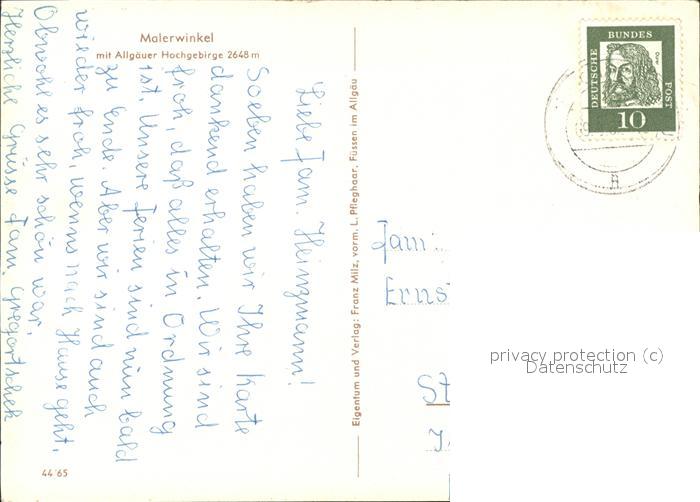 Malerwinkel
mit Allgäuer Hochgebirge 2648 m
Liebe Fam. Heinzmann!
Soeben haben wir Ihre Karte
dankend erhalten. Wir sind
froh, daß alles in Ordnung
ist. Unsere Ferien sind nun bald
zu Ende. Aber wir sind auch
wieder froh, wenns nach Hause geht.
Obwohl es sehr schön war.
Herzliche Grüsse Fam. Gregortschek
44/65
Eigentum und Verlag: Franz Milz, vorm. L. Pfleghaar, Füssen im Allgäu
DEUTSCHE BUNDES POST
10
Fam:
Erns
St
privacy protection (c)
Datenschutz